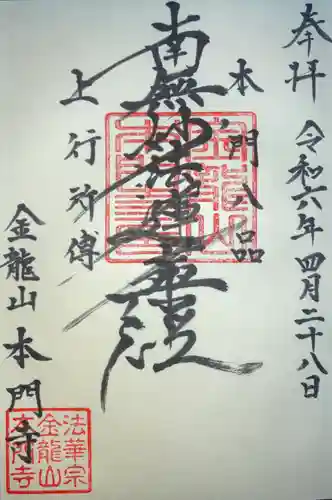 奉拝
令和六年四月二十八日
本門八品
南無妙法蓮華經
上行所傳
金龍山
本門寺
法華宗
金龍山
本門寺